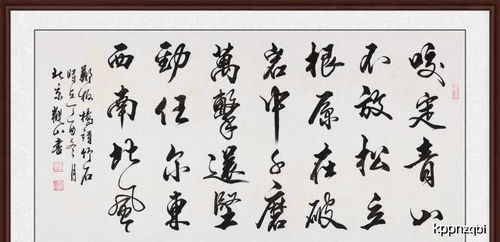 咬定青山
不放松立
根原在破
岩中千磨
萬擊還堅
勁任尔東
西南北風
鄭板橋詩竹石
時在丁酉冬月
北京觀山書
kppnzqbi